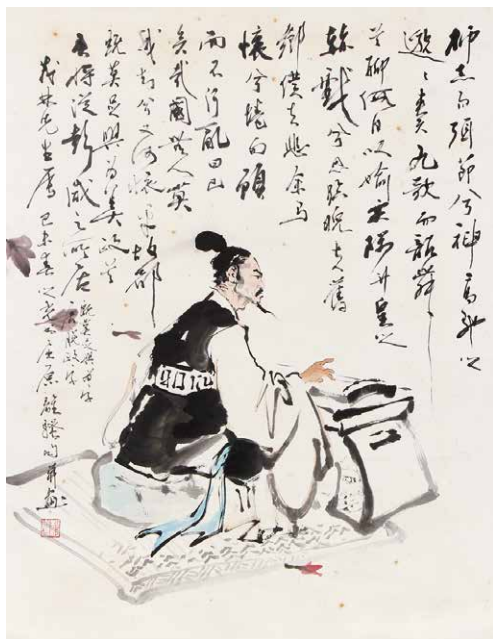 抑志而弭節兮神高馳之
邈々奏九歌而韶舞
兮聊假日以媮樂陟升皇之
赫戲兮忽臨睨夫舊
鄉僕夫悲余馬
懷兮蜷局顧
而不行亂曰已
矣哉國無人莫
我知兮又何懷乎故都
既莫足與為美政兮
吾將從彭咸之所居
茂林先生屬 己未春之 屈原離騷句并畫